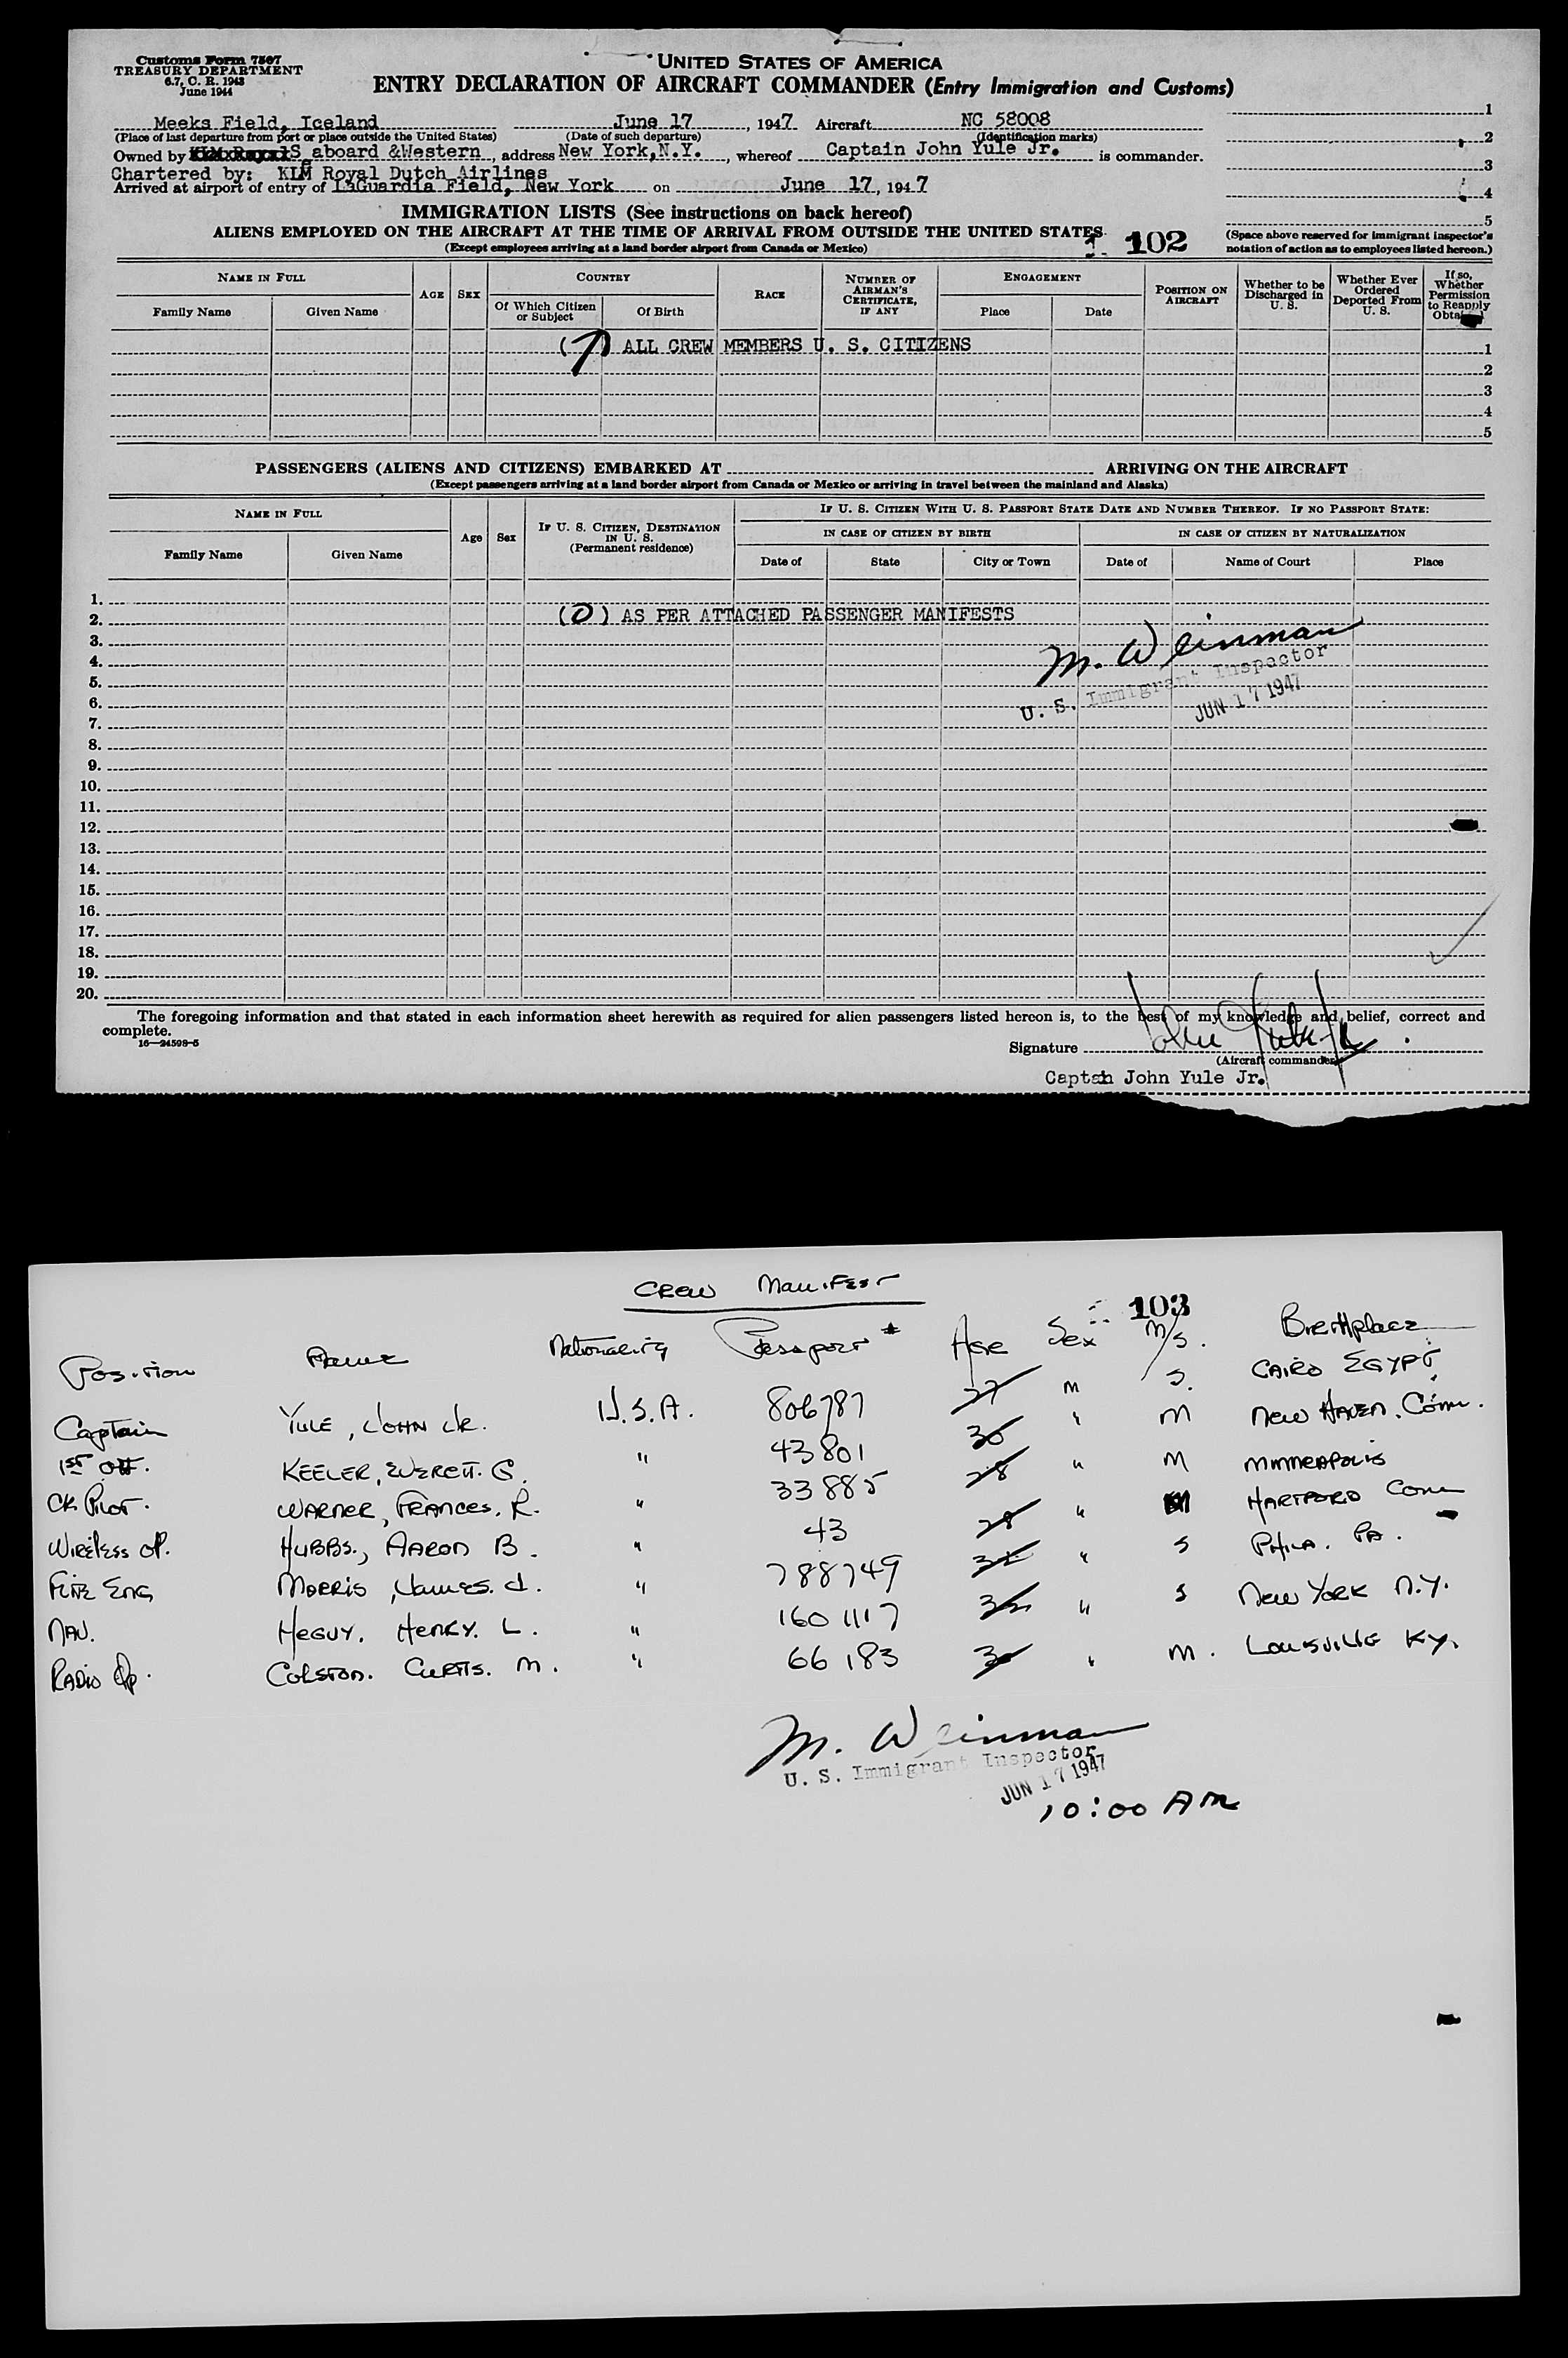 Customs Form 7507
TREASURY DEPARTMENT
6.7, C. R. 1943
June 1944
UNITED STATES OF AMERICA
ENTRY DECLARATION OF AIRCRAFT COMMANDER (Entry Immigration and Customs)
Meeks Field, Iceland June 17, 1947 Aircraft NC 58008
(Place of last departure from port or place outside the United States) (Date of such departure) (Identification marks)
Owned by Seaboard &Western, address New York, N.Y., whereof Captain John Yule Jr. is commander.
Chartered by: KLM Royal Dutch Airlines
Arrived at airport of entry of LaGuardia Field, New York on June 17, 1947
1
2
3
4
5
(Space above reserved for immigrant inspector's notation of action as to employees listed hereon.)
IMMIGRATION LISTS (See instructions on back hereof)
ALIENS EMPLOYED ON THE AIRCRAFT AT THE TIME OF ARRIVAL FROM OUTSIDE THE UNITED STATES
(Except employees arriving at a land border airport from Canada or Mexico)
102
NAME IN FULL
Family Name Given Name
AGE SEX
COUNTRY
Of Which Citizen or Subject Of Birth
RACE
NUMBER OF AIRMAN'S CERTIFICATE, IF ANY
ENGAGEMENT
Place Date
POSITION ON AIRCRAFT
Whether to be Discharged in U. S.
Whether Ever Ordered Deported From U. S.
If so, Whether Permission to Reapply
(7) ALL CREW MEMBERS U. S. CITIZENS
1
2
3
4
5
PASSENGERS (ALIENS AND CITIZENS) EMBARKED AT ARRIVING ON THE AIRCRAFT
(Except passengers arriving at a land border airport from Canada or Mexico or arriving in travel between the mainland and Alaska)
NAME IN FULL
Family Name Given Name
Age Sex
IF U. S. CITIZEN, DESTINATION IN U. S.
(Permanent residence)
IF U. S. CITIZEN WITH U. S. PASSPORT STATE DATE AND NUMBER THEREOF. IF NO PASSPORT STATE:
IN CASE OF CITIZEN BY BIRTH IN CASE OF CITIZEN BY NATURALIZATION
Date of State City or Town Date of Name of Court Place
1.
2. (0) AS PER ATTACHED PASSENGER MANIFESTS
3.
4.
5.
6.
7.
8.
9.
10.
11.
12.
13.
14.
15.
16.
17.
18.
19.
20.
M. Weinman
U. S. Immigrant Inspector
JUN 17 1947
The foregoing information and that stated in each information sheet herewith as required for alien passengers listed hereon is, to the best of my knowledge and belief, correct and
complete.
16—24598-5
Signature John Yule Jr.
(Aircraft commander)
Captain John Yule Jr.
CREW MANIFEST
103
Position Name Nationality Passport # Age Sex M/S. Birthplace
Captain YULE, JOHN JR. U.S.A. 806787 27 M S. CAIRO EGYPT
1ST Off. KEELER, EVERETT. G. " 43801 30 " M New HAVEN, Conn.
CK PILOT. WARNER, FRANCES. R. " 33885 28 " M MINNEAPOLIS
Wireless OP. HUBBS., AARON B. " 43 28 " HARTFORD Conn
FLTE ENG MORRIS, James. J. " 788749 " S PHILA. PA.
NAV. HEGUY, HENRY. L. " 1601117 " S New YORK N.Y.
RADIO Op. COLSTON. CURTIS. M. " 66183 30 " M. LOUISVILLE KY.
M. Weinman
U. S. Immigrant Inspector
JUN 17 1947
10:00 AM